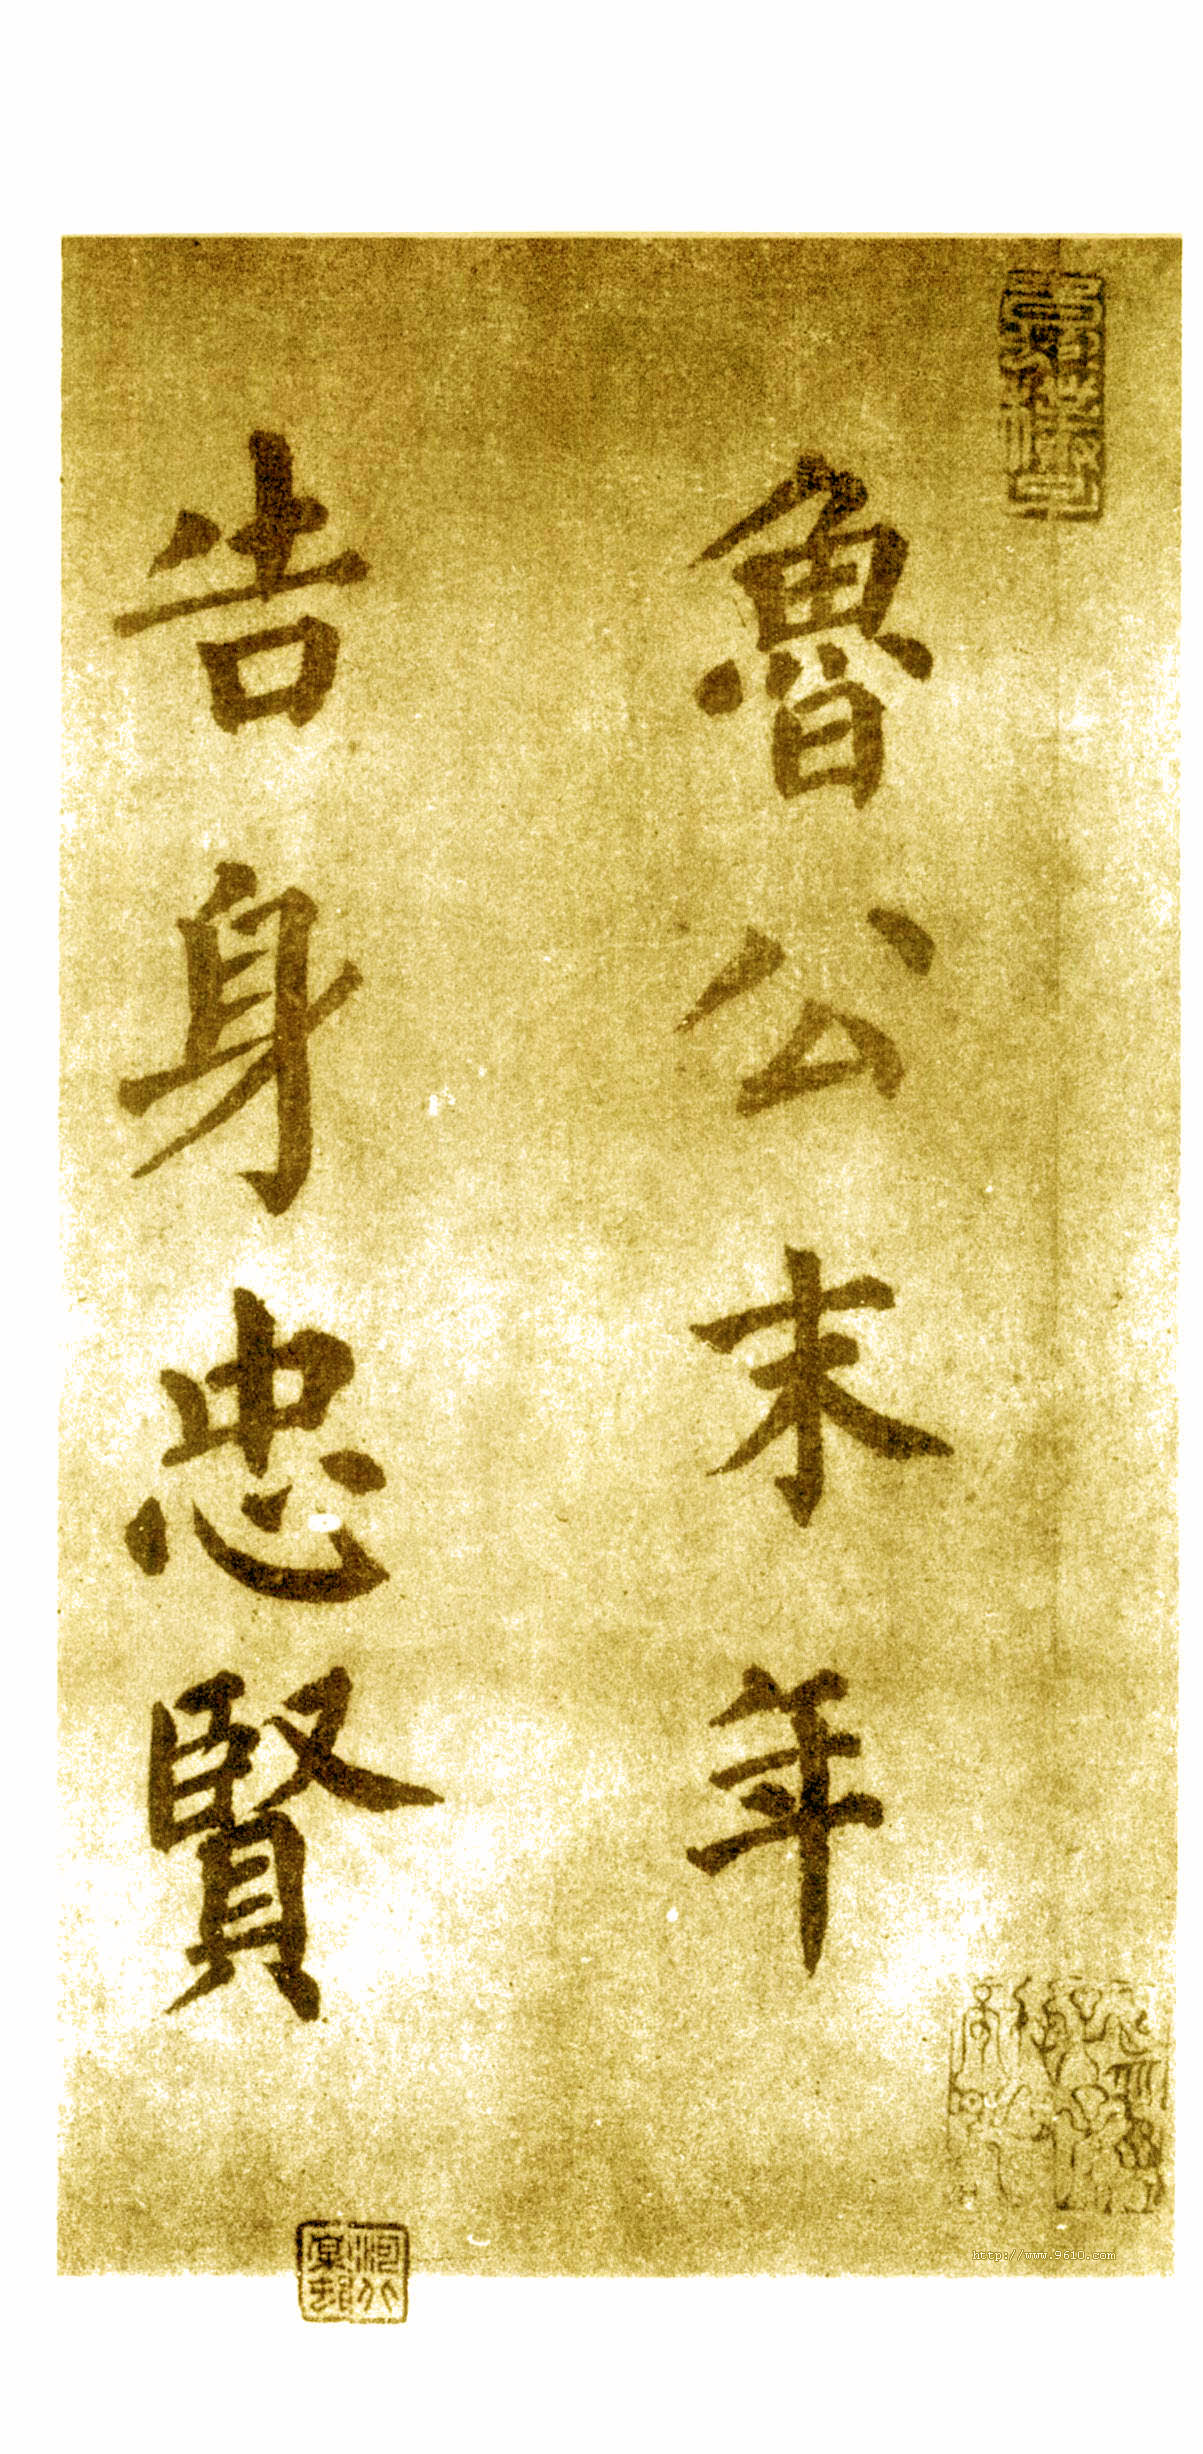 魯公末年
告身忠賢
http://www.9610.com